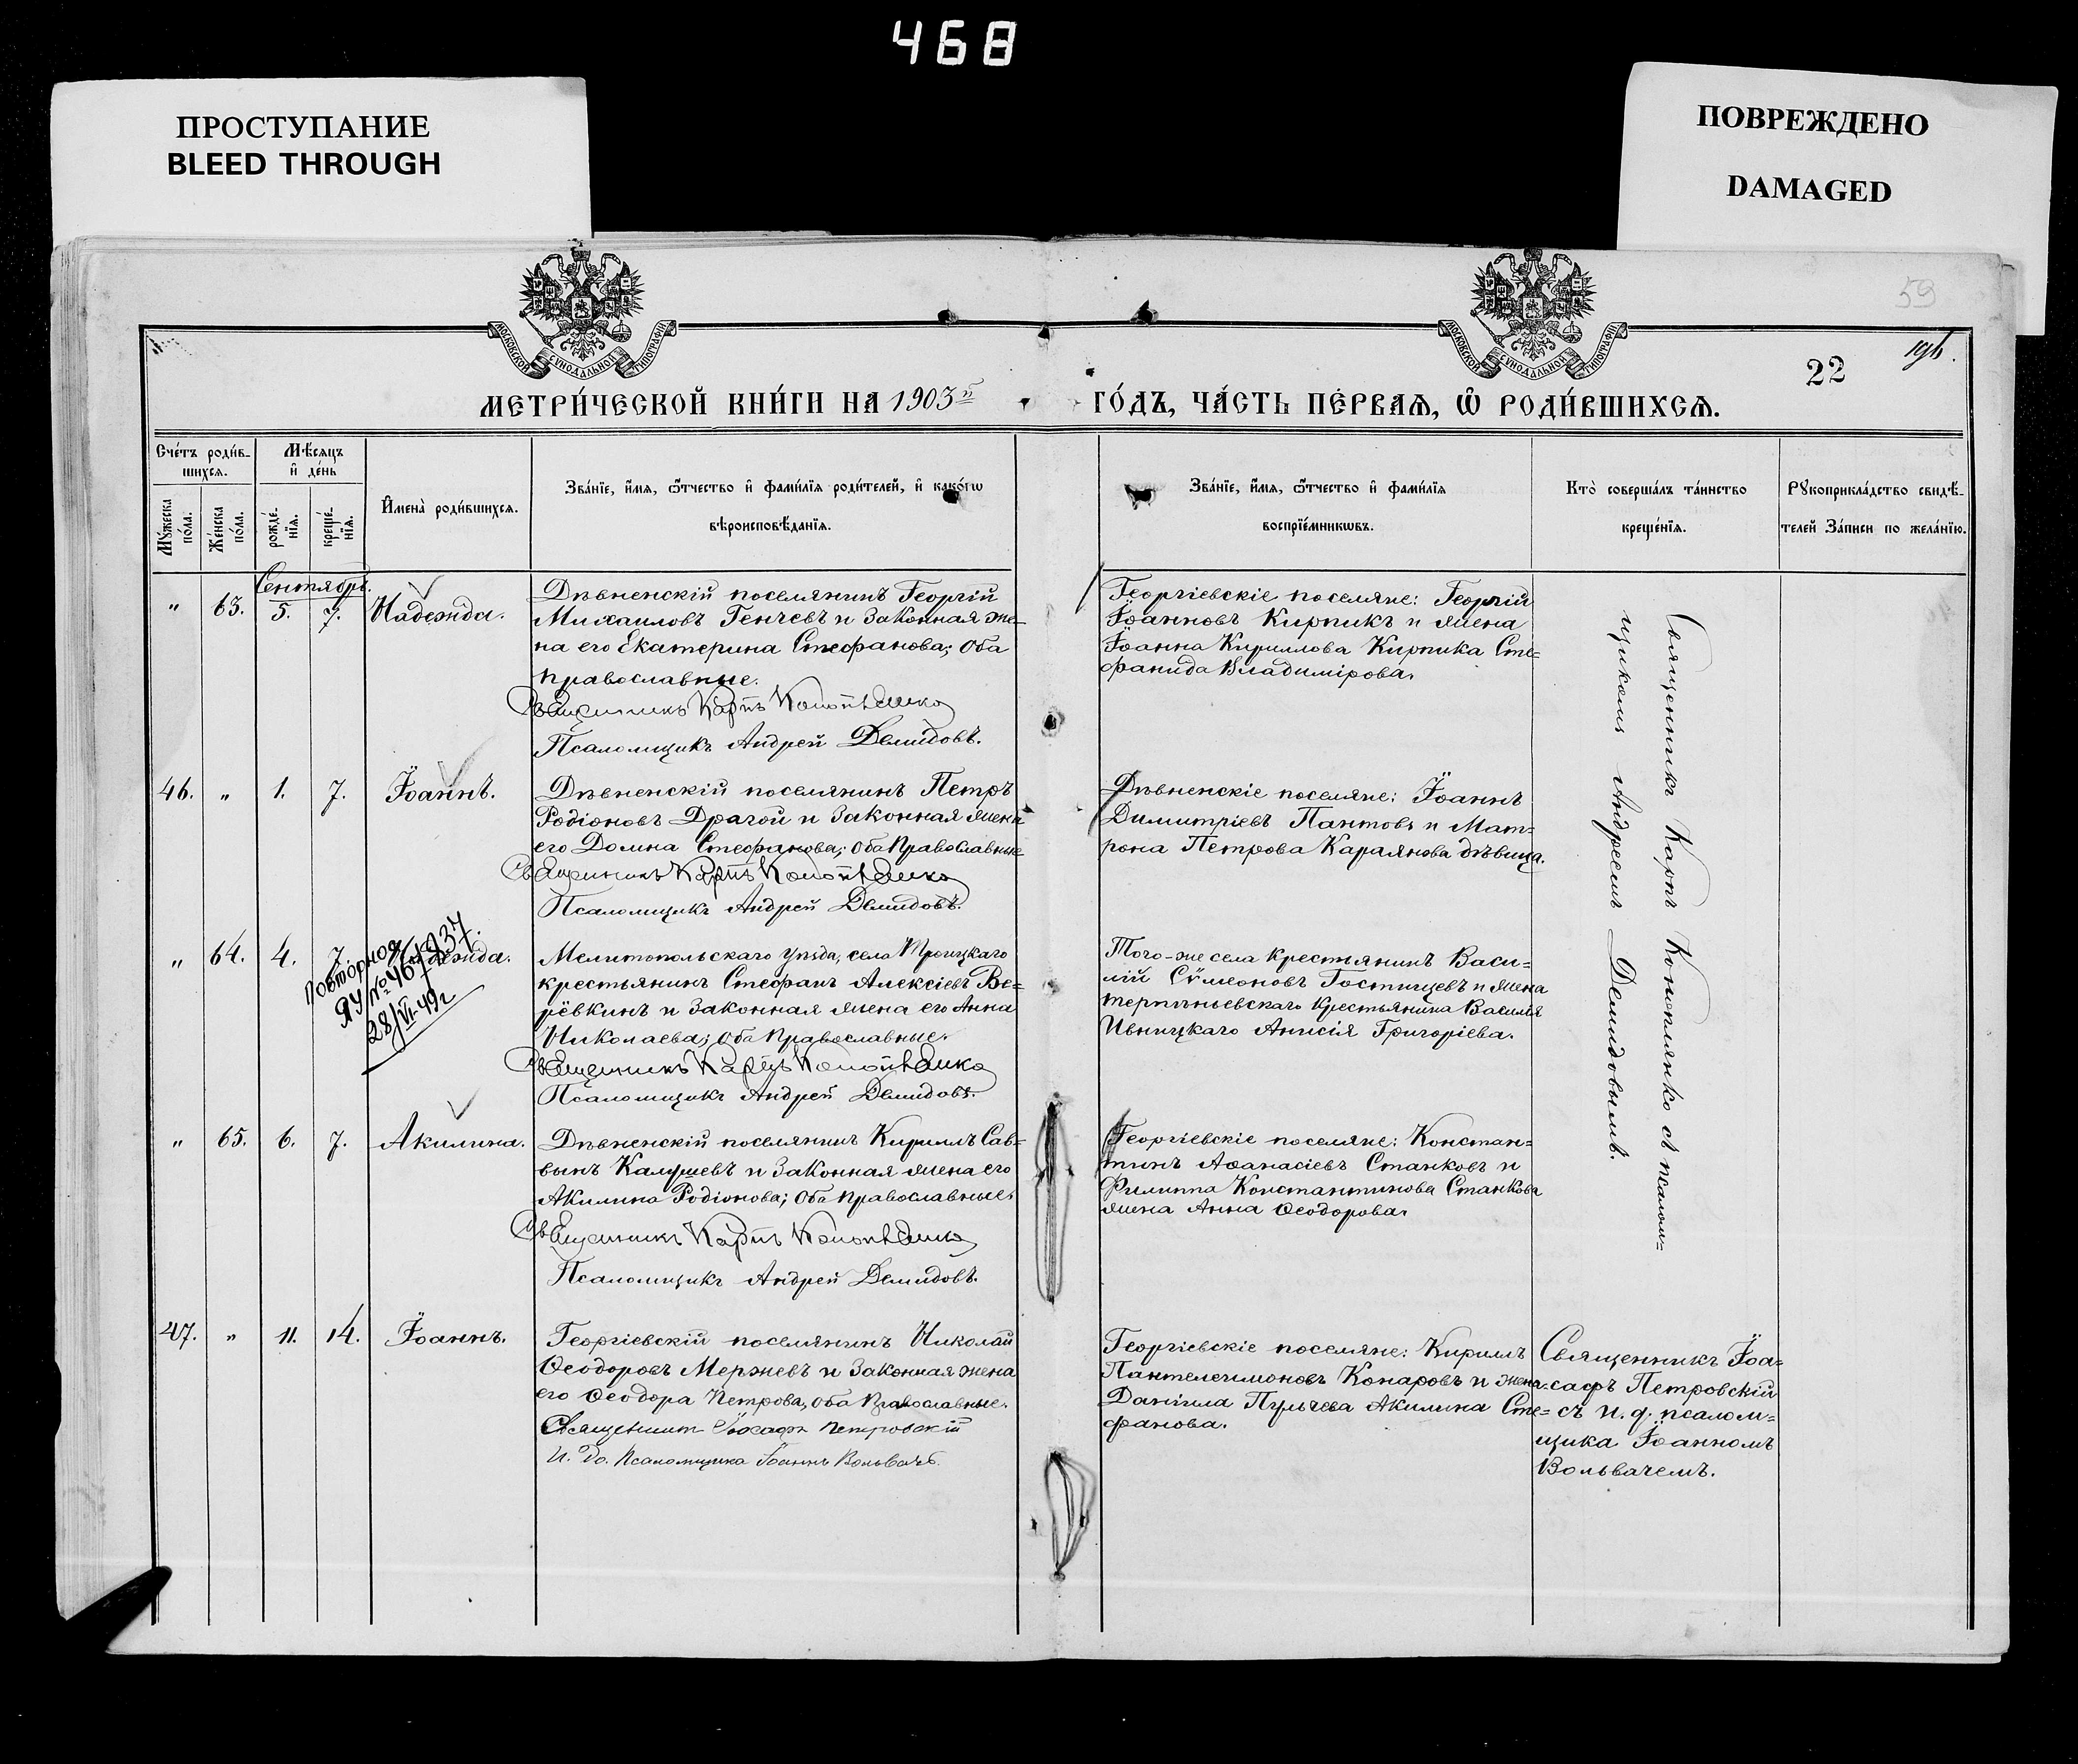 468
ПРОСТУПАНИЕ
BLEED THROUGH
ПОВРЕЖДЕНО
DAMAGED
59
22
МОСКОВСКОЙ СѴНОДАЛЬНОЙ ТИПОГРАФІИ
МОСКОВСКОЙ СѴНОДАЛЬНОЙ ТИПОГРАФІИ
МЕТРИ́ЧЕСКОЙ КНИ́ГИ НА 1903й ГО́ДЪ, ЧА́СТЬ ПЕ́РВАѦ, Ѽ РОДИ́ВШИХСѦ.
Сче́тъ роди́в-
шихсѧ.
Мѣ́сѧцъ
и҆ де́нь
Мꙋ́жеска
по́ла.
Же́нска
по́ла.
рожде́-
нїѧ.
креще́-
нїѧ.
И҆мена̀ роди́вшихсѧ.
Зва́нїе, и҆́мѧ, ѻ҆́тчество и҆ фами́лїѧ роди́телей, и҆ како́гѡ
вѣроисповѣ́данїѧ.
Зва́нїе, и҆́мѧ, ѻ҆́тчество и҆ фами́лїѧ
воспрїе́мникѡвъ.
Кто̀ соверша́лъ та́инство
креще́нїѧ.
Рꙋкоприкла́дство свидѣ́-
телей За́писи по жела́нїю.
Сентябрь.
" 63. 5. 7. Надежда.
Дѣвненскій поселянинъ Георгій
Михаиловъ Генчевъ и законная же-
на его Екатерина Стефанова; оба
православные.
Священникъ Карпъ Коноплянко
Псаломщикъ Андрей Демидовъ.
Георгіевскіе поселяне: Георгій
Іоанновъ Кирпикъ и жена
Іоанна Кириллова Кирпика Сте=
фанида Владимірова.
Священникъ Карпъ Коноплянко съ псалом=
щикомъ Андреемъ Демидовымъ.
46. " 1. 7. Іоаннъ.
Дѣвненскій поселянинъ Петръ
Родіоновъ Драгой и законная жена
его Домна Стефанова; оба православные
Священникъ Карпъ Коноплянко
Псаломщикъ Андрей Демидовъ.
Дѣвненскіе поселяне: Іоаннъ
Димитріевъ Пантовъ и Мат=
рона Петрова Караянова дѣвица.
" 64. 4. 7. Надежда.
повторное
ЯУ №
28/VI-49г
Мелитопольскаго уѣзда, села Троицкаго
крестьянинъ Стефанъ Алексіевъ Ве=
рёвкинъ и законная жена его Анна
Николаева; оба православные.
Священникъ Карпъ Коноплянко
Псаломщикъ Андрей Демидовъ.
Того-же села крестьянинъ Васи=
лій Сѵмеоновъ Гостищевъ и жена
терпѣньевскаго крестьянина Василія
Ивницкаго Анисія Григоріева.
" 65. 6. 7. Акилина.
Дѣвненскій поселянинъ Кириллъ Сав=
вынъ Калушевъ и законная жена его
Акилина Родіонова; оба православные.
Священникъ Карпъ Коноплянко
Псаломщикъ Андрей Демидовъ.
Георгіевскіе поселяне: Констан=
тинъ Аѳанасіевъ Станковъ и
Филиппа Константинова Станкова
жена Анна Ѳеодорова.
47. " 11. 14. Іоаннъ.
Георгіевскій поселянинъ Николай
Ѳеодоровъ Мержевъ и законная жена
его Ѳеодора Петрова, оба православные.
Священникъ Іоасафъ Петровскій
И. До. Псаломщика Іоаннъ Вольвачъ.
Георгіевскіе поселяне: Кириллъ
Пантелеимоновъ Конаровъ и жена
Даніила Пульчева Акилина Сте=
фанова.
Священникъ Іоа=
сафъ Петровскій
съ и. д. псалом=
щика Іоанномъ
Вольвачемъ.